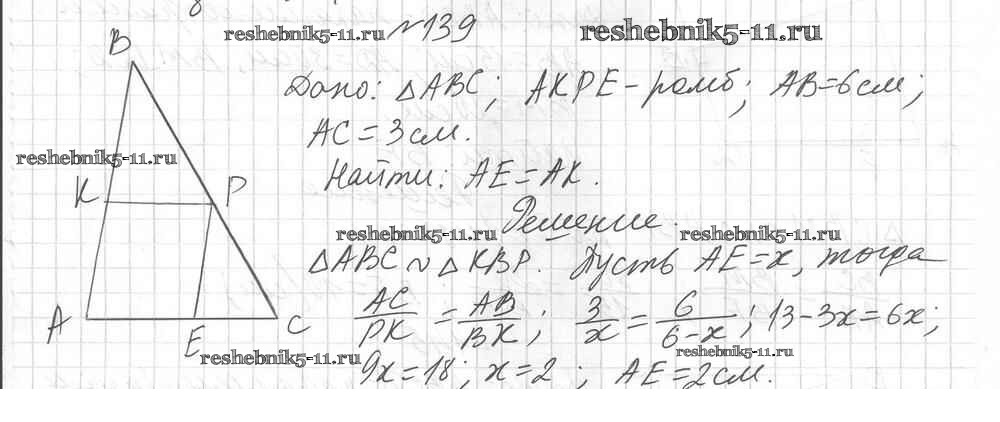 reshebnik5-11.ru №139 reshebnik5-11.ru
B
Дано: △ABC; AKPE - ромб; AB=6см;
AC = 3 см.
reshebnik5-11.ru
Найти: AE = AK.
K P
Решение
reshebnik5-11.ru reshebnik5-11.ru
△ABC ~ △KBP. Пусть AE=x, тогда
AC/PK = AB/BK; 3/x = 6/6-x; 13-3x=6x;
A E C
reshebnik5-11.ru reshebnik5-11.ru
9x=18; x=2; AE=2см.